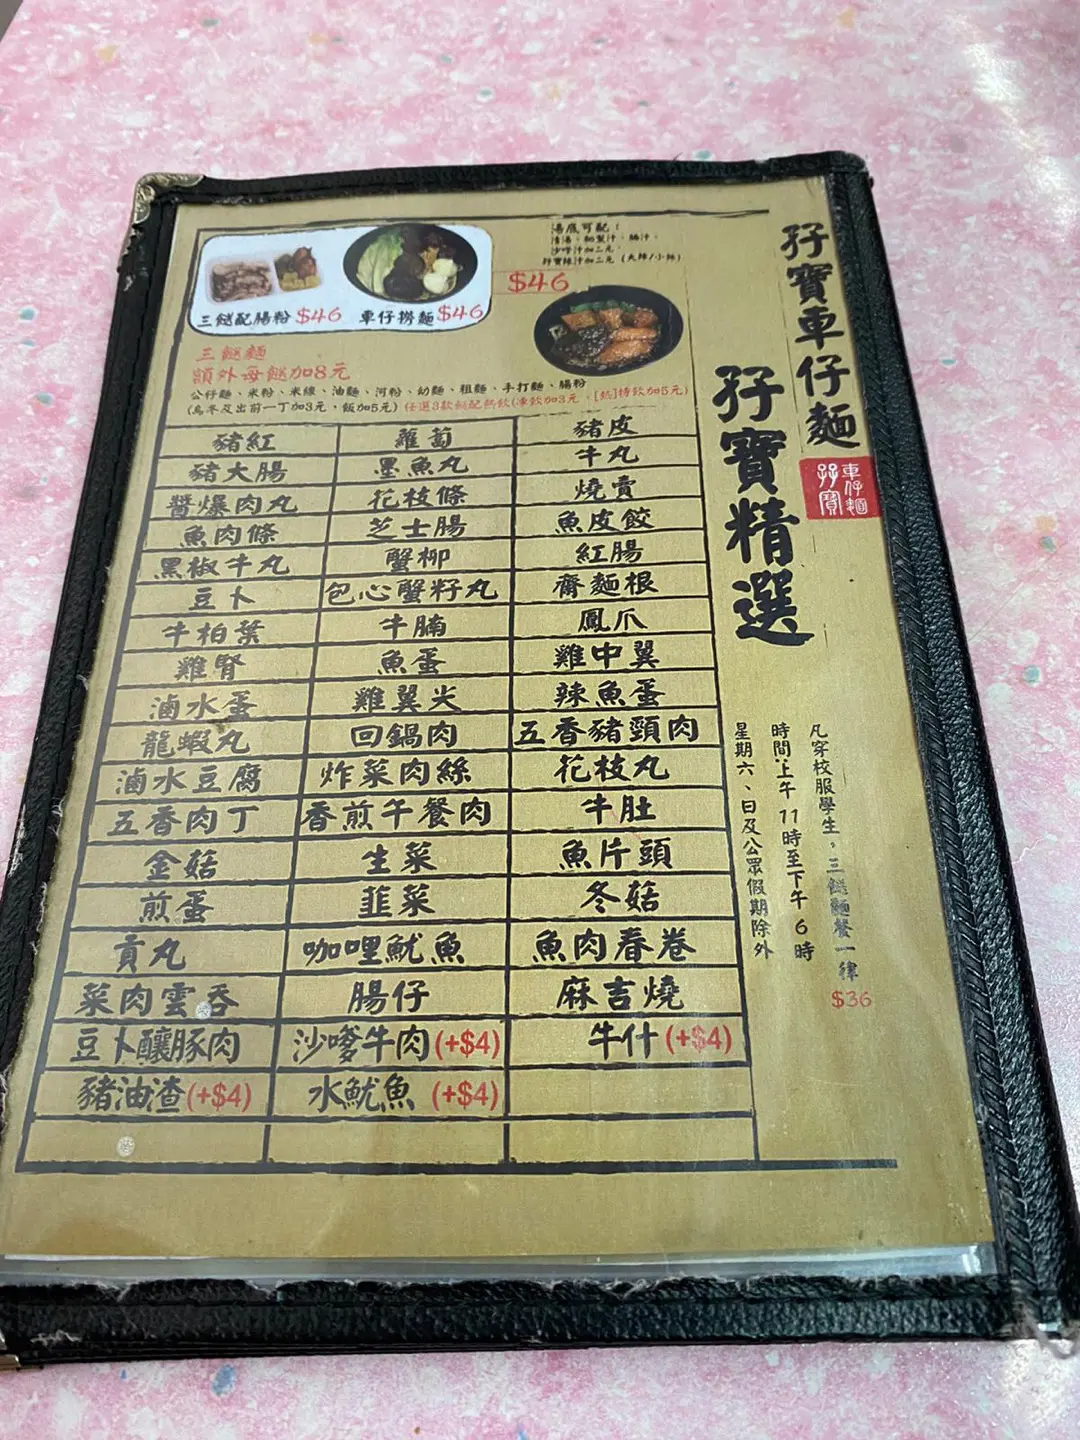 孖寶車仔麵
孖寶
車仔麵
孖寶精選
湯底可配：
清湯、秘製汁、腩汁、
沙嗲汁加二元、
孖寶辣汁加二元 (大辣/小辣)
$46
三餸配腸粉 $46 車仔撈麵 $46
三餸麵
額外每餸加8元
公仔麵、米粉、米線、油麵、河粉、幼麵、粗麵、手打麵、腸粉
(烏冬及出前一丁加3元，飯加5元) 任選3款餸配熱飲(凍飲加3元、[熱]特飲加5元)
豬紅 蘿蔔 豬皮
豬大腸 墨魚丸 牛丸
醬爆肉丸 花枝條 燒賣
魚肉條 芝士腸 魚皮餃
黑椒牛丸 蟹柳 紅腸
豆卜 包心蟹籽丸 齋麵根
牛柏葉 牛腩 鳳爪
雞腎 魚蛋 雞中翼
滷水蛋 雞翼尖 辣魚蛋
龍蝦丸 回鍋肉 五香豬頸肉
滷水豆腐 炸菜肉絲 花枝丸
五香肉丁 香煎午餐肉 牛肚
金菇 生菜 魚片頭
煎蛋 韮菜 冬菇
貢丸 咖哩魷魚 魚肉春卷
菜肉雲吞 腸仔 麻吉燒
豆卜釀豚肉 沙嗲牛肉(+$4) 牛什(+$4)
豬油渣(+$4) 水魷魚 (+$4)
凡穿校服學生，三餸麵餐一律
$36
時間上午 11時至下午 6 時
星期六、日及公眾假期除外